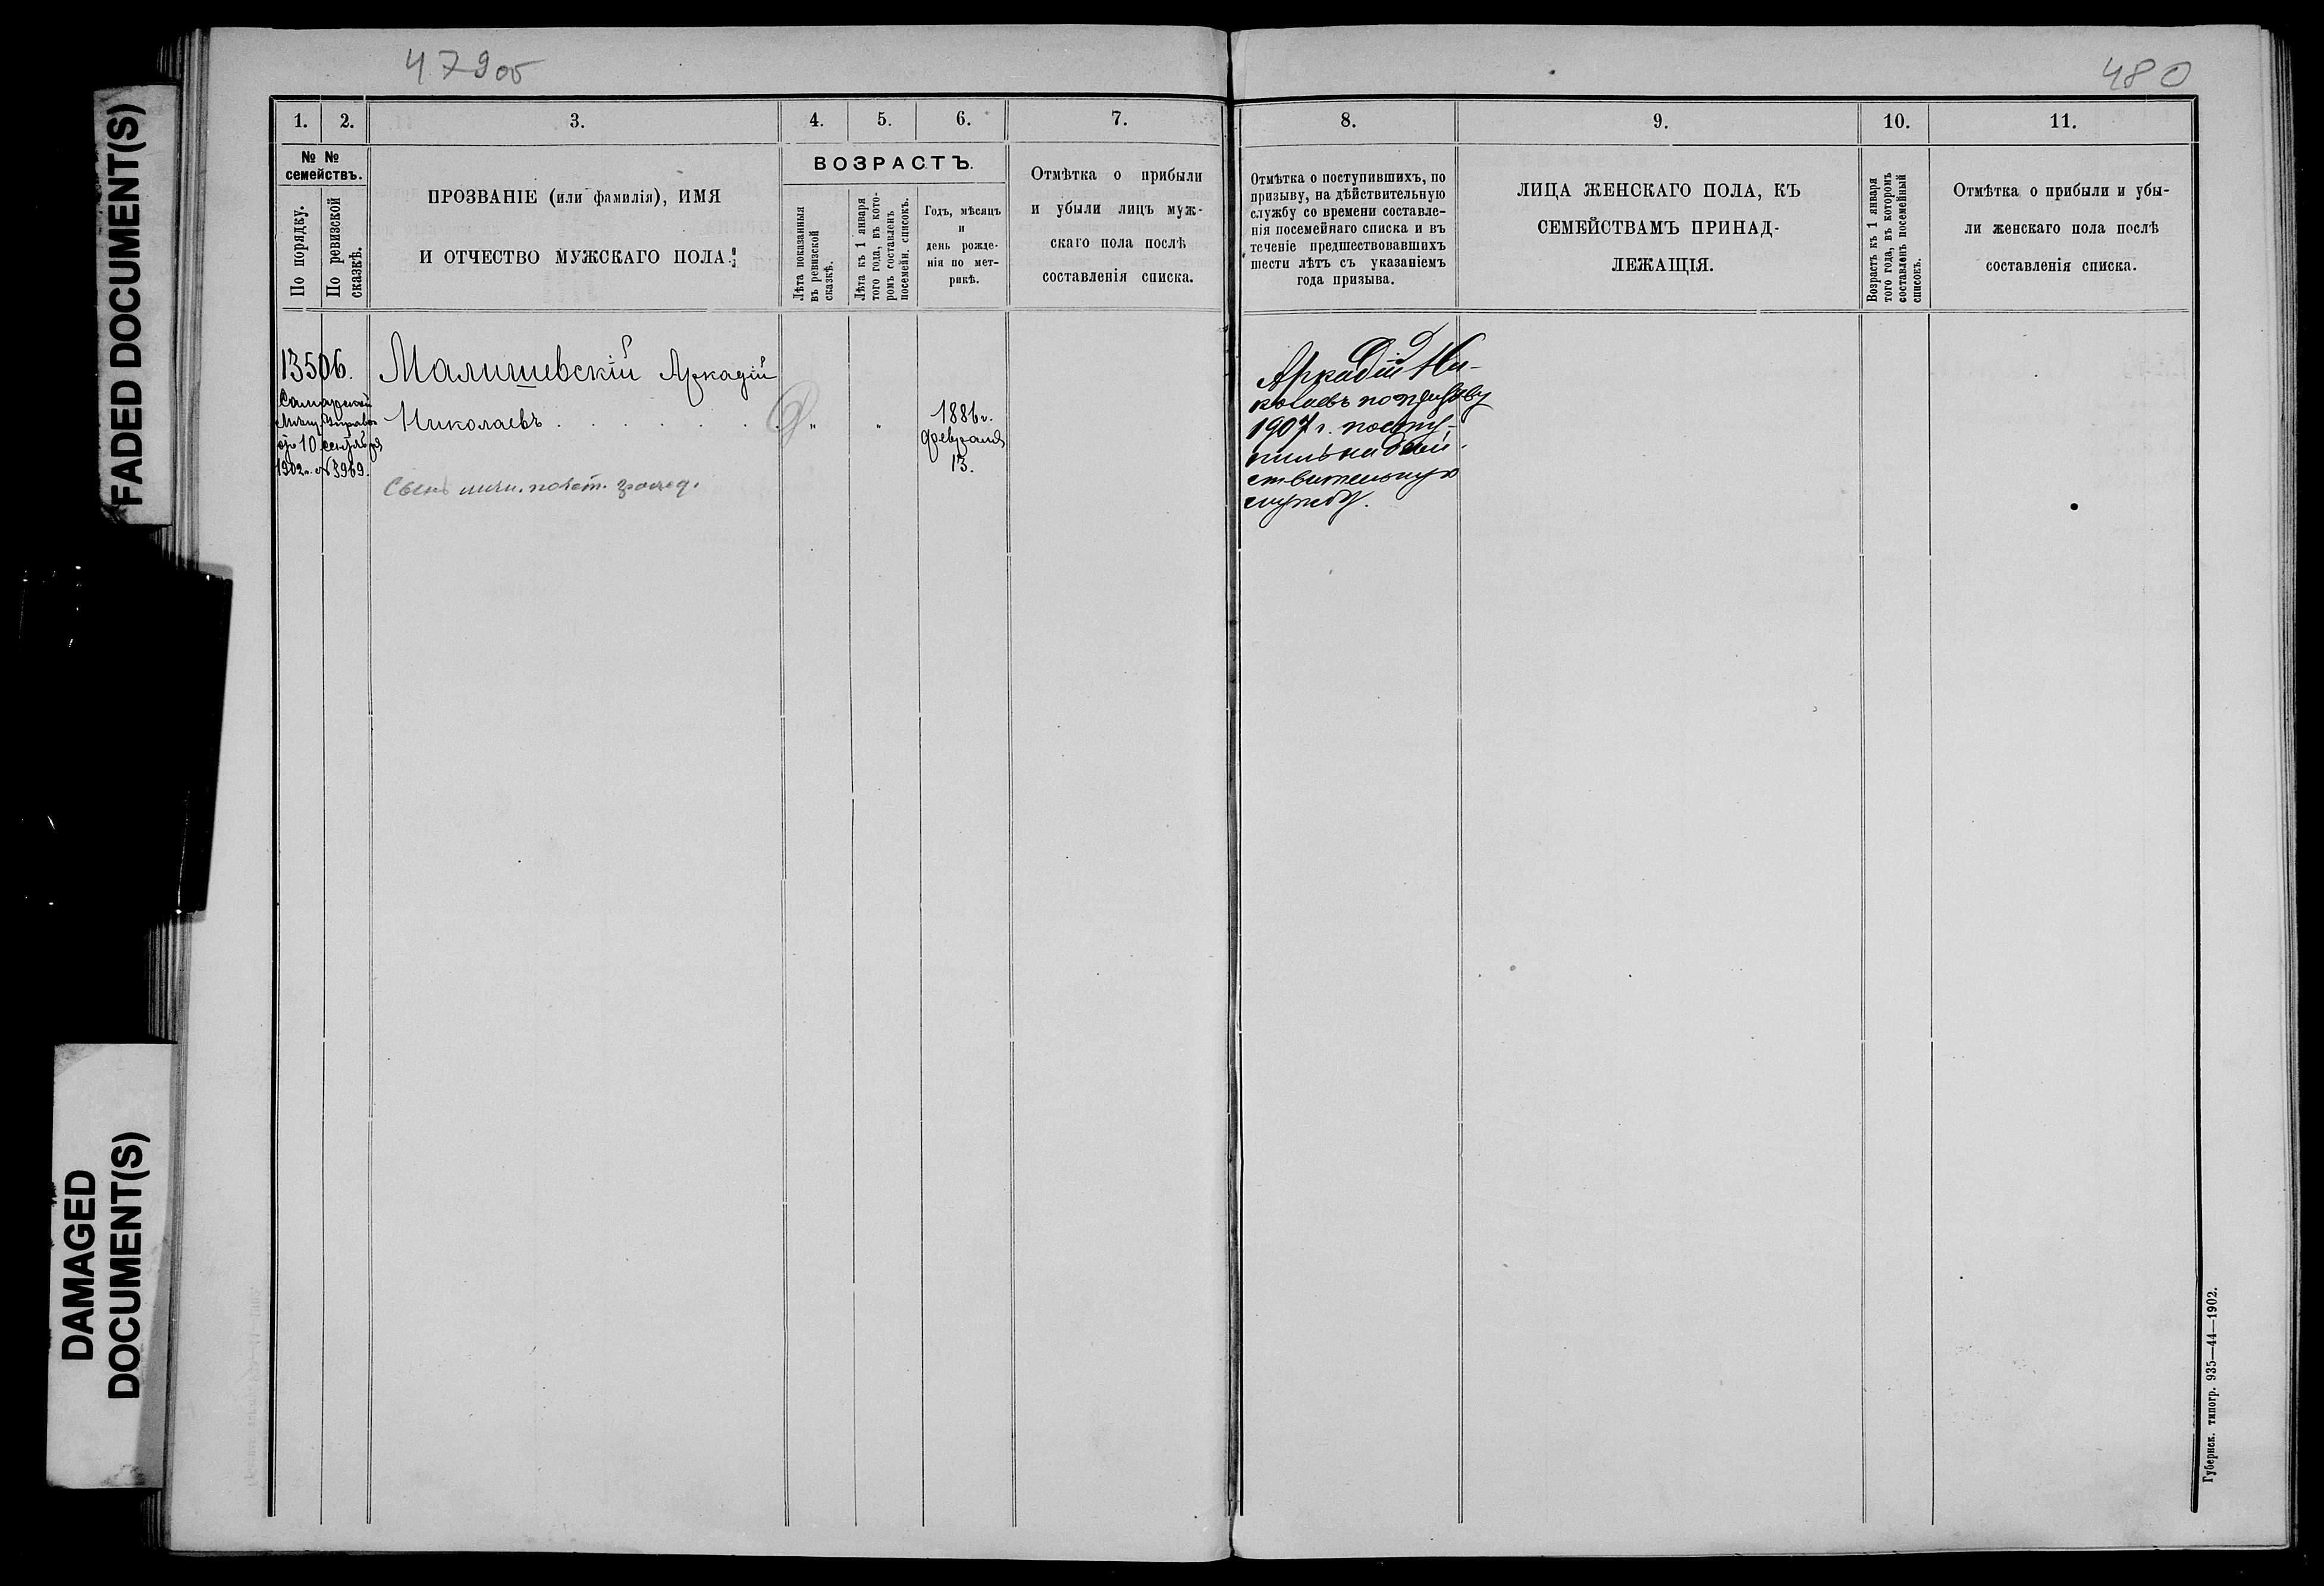 479об
480
FADED DOCUMENT(S)
DAMAGED
DOCUMENT(S)
1.
2.
3.
4.
5.
6.
7.
№ №
семействъ.
По порядку.
По ревизской
сказкѣ.
ПРОЗВАНІЕ (или фамилія), ИМЯ
И ОТЧЕСТВО МУЖСКАГО ПОЛА.
ВОЗРАСТЪ.
Лѣта показанныя
въ ревизской
сказкѣ.
Лѣта къ 1 января
того года, въ кото-
ромъ составленъ
посемейн. списокъ.
Годъ, мѣсяцъ
и
день рожде-
нія по мет-
рикѣ.
Отмѣтка о прибыли
и убыли лицъ муж-
скаго пола послѣ
составленія списка.
13506.
Самарской
Мѣщ. Управы
10 сентября
1902 г. № 3969.
Малишевскій Аркадій
Николаевъ . . . . . .
„ „
1886 г.
февраля
13.
Сынъ личн. почет. гражд.
8.
9.
10.
11.
Отмѣтка о поступившихъ, по
призыву, на дѣйствительную
службу со времени составле-
нія посемейнаго списка и въ
теченіе предшествовавшихъ
шести лѣтъ съ указаніемъ
года призыва.
ЛИЦА ЖЕНСКАГО ПОЛА, КЪ
СЕМЕЙСТВАМЪ ПРИНАД-
ЛЕЖАЩІЯ.
Возрастъ къ 1 января
того года, въ которомъ
составленъ посемейный
списокъ.
Отмѣтка о прибыли и убы-
ли женскаго пола послѣ
составленія списка.
Аркадій Ни-
колаевъ по призыву
1907 г. посту-
пилъ на дѣй-
ствительную
службу.
Губернск. типогр. 935—44—1902.